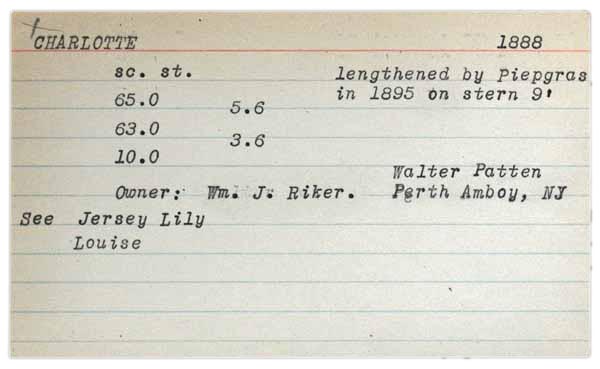 CHARLOTTE 1888
sc. st. lengthened by Piepgras
65.0 in 1895 on stern 9'
5.6
63.0
3.6
10.0
Walter Patten
Owner: Wm. J. Riker. Perth Amboy, NJ
See Jersey Lily
Louise